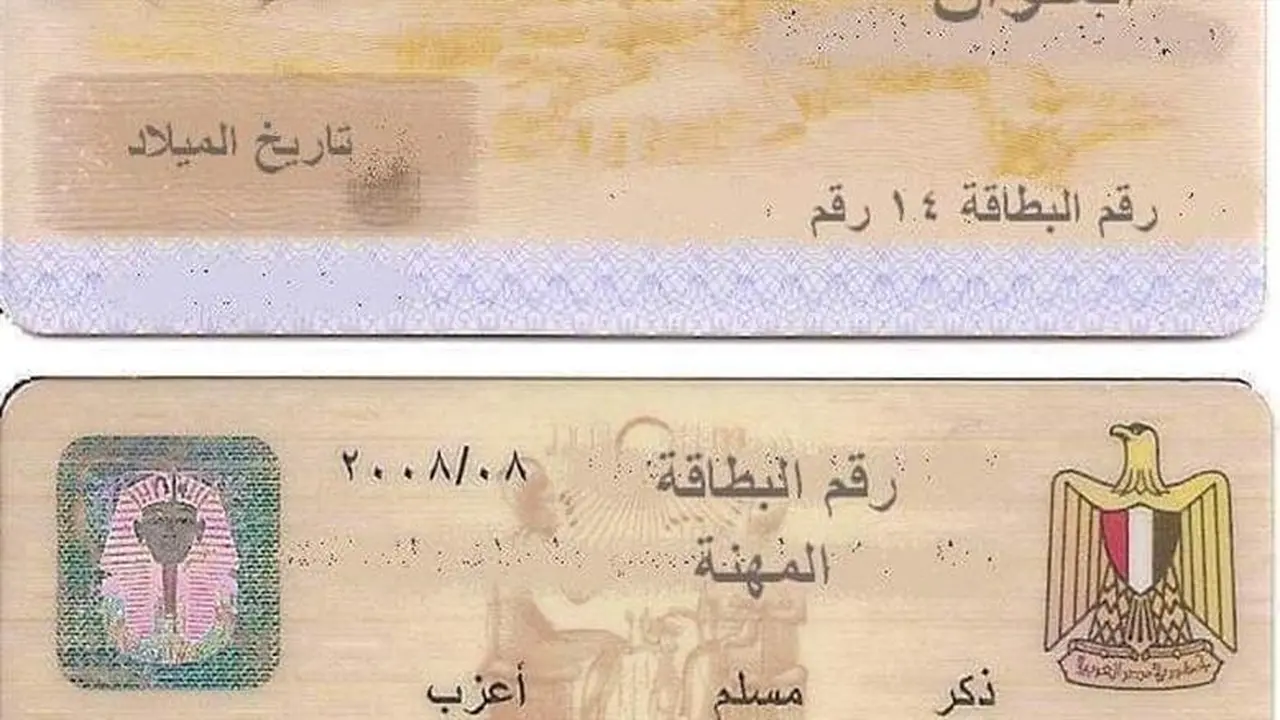 العنوان
تاريخ الميلاد
رقم البطاقة ١٤ رقم
رقم البطاقة ٢٠٠٨/٠٨
المهنة
ذكر مسلم أعزب
جمهورية مصر العربية